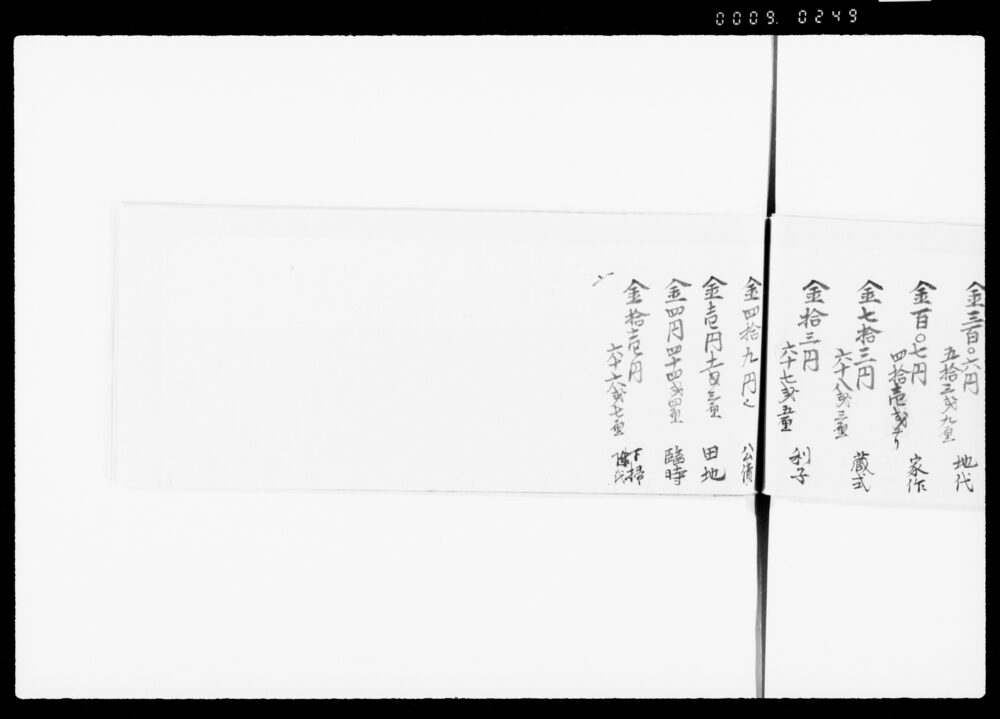 0009 0249
金三百〇六円
五拾三戔九厘
地代
金百〇七円
四拾壱戔
家作
金七拾三円
六十八戔三厘
蔵式
金拾三円
六十七戔五厘
利子
金四拾九円
公債
金壱円
田地
金四円四十四戔四厘
臨時
金拾壱円
六十六戔七厘
下掃